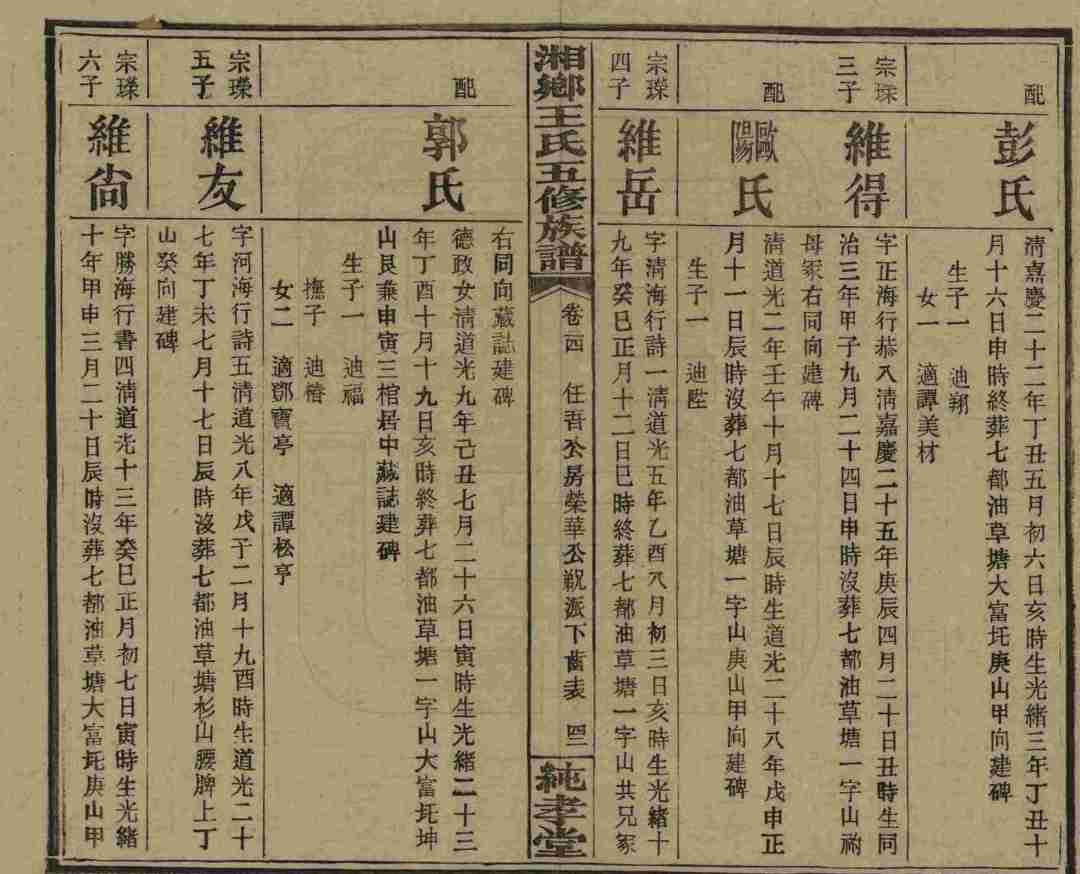 配
彭氏
清嘉慶二十二年丁丑五月初六日亥時生光緒三年丁丑十
月十六日申時終葬七都油草塘大富圫庚山甲向建碑
生子一　迪翔
女一　適譚美材
宗瑮
三子
維得
字正海行恭八清嘉慶二十五年庚辰四月二十日丑時生同
治三年甲子九月二十四日申時沒葬七都油草塘一字山祔
母冢右同向建碑
配
歐陽氏
清道光二年壬午十月十七日辰時生道光二十八年戊申正
月十一日辰時沒葬七都油草塘一字山庚山甲向建碑
生子一　迪陞
宗瑮
四子
維岳
字清海行詩一清道光五年乙酉八月初三日亥時生光緒十
九年癸巳正月十二日巳時終葬七都油草塘一字山共兄冢
湘鄉王氏五修族譜
卷一四　任吾公房榮華公派下齒表　四二
純孝堂
右同向藏誌建碑
配
郭氏
德政女清道光九年己丑七月二十六日寅時生光緒二十三
年丁酉十月十九日亥時終葬七都油草塘一字山大富圫坤
山艮兼申寅三棺居中藏誌建碑
生子一　迪福
撫子　迪椿
女二　適鄧寶亭　適譚松亭
宗瑮
五子
維友
字河海行詩五清道光八年戊子二月十九酉時生道光二十
七年丁未七月十七日辰時沒葬七都油草塘杉山腰牌上丁
山癸向建碑
宗瑮
六子
維尙
字勝海行書四清道光十三年癸巳正月初七日寅時生光緒
十年甲申三月二十日辰時沒葬七都油草塘大富圫庚山甲